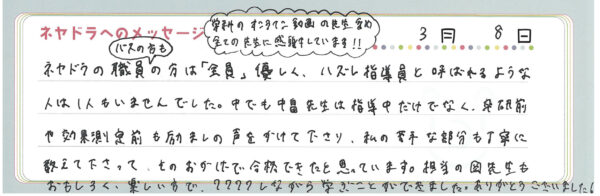 ネヤドラへのメッセージ
学科のオンライン動画の先生含め
全ての先生に感謝しています!!
3月 8日
バスの方も
ネヤドラの職員の方は「全員」優しく、ハズレ指導員と呼ばれるような
人は1人もいませんでした。中でも中畠先生は指導中だけでなく、卒研前
や効果測定前も励ましの声をかけて下さり、私の苦手な部分も丁寧に
教えて下さって、そのおかげで合格できたと思っています。担当の岡先生も
おもしろく、楽しい方で、ワクワクしながら学ぶことができました。ありがとうございました!